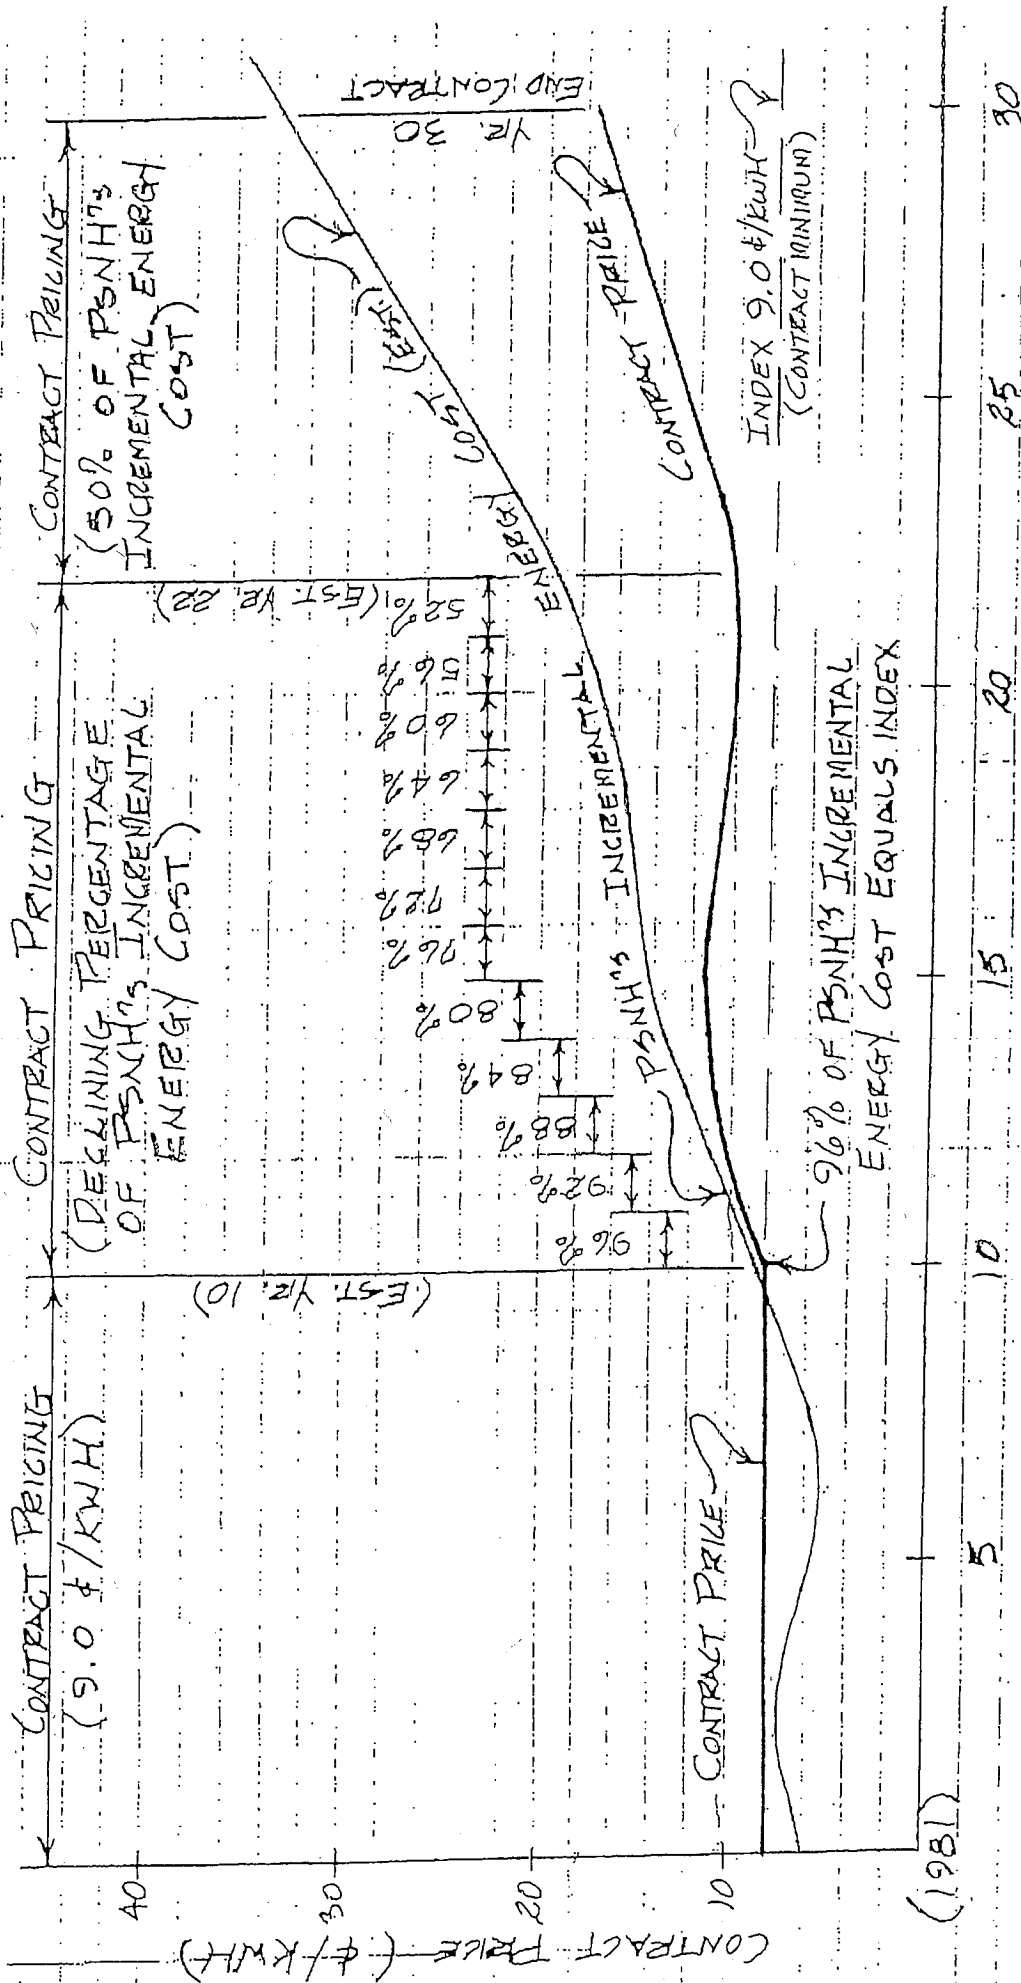 CONTRACT PRICING
(9.0 ¢/KWH)
CONTRACT PRICING
(DECLINING PERCENTAGE
OF PSNH'S INCREMENTAL
ENERGY COST)
CONTRACT PRICING
(50% OF PSNH'S
INCREMENTAL ENERGY
COST)
(EST. YR. 10)
(EST. YR. 22)
YR. 30
END CONTRACT
96%
92%
88%
84%
80%
76%
72%
68%
64%
60%
56%
52%
PSNH'S INCREMENTAL ENERGY COST (EST.)
CONTRACT PRICE
CONTRACT PRICE
INDEX 9.0 ¢/KWH
(CONTRACT MINIMUM)
96% OF PSNH'S INCREMENTAL
ENERGY COST EQUALS INDEX
CONTRACT PRICE (¢/KWH)
40
30
20
10
(1981)
5
10
15
20
25
30